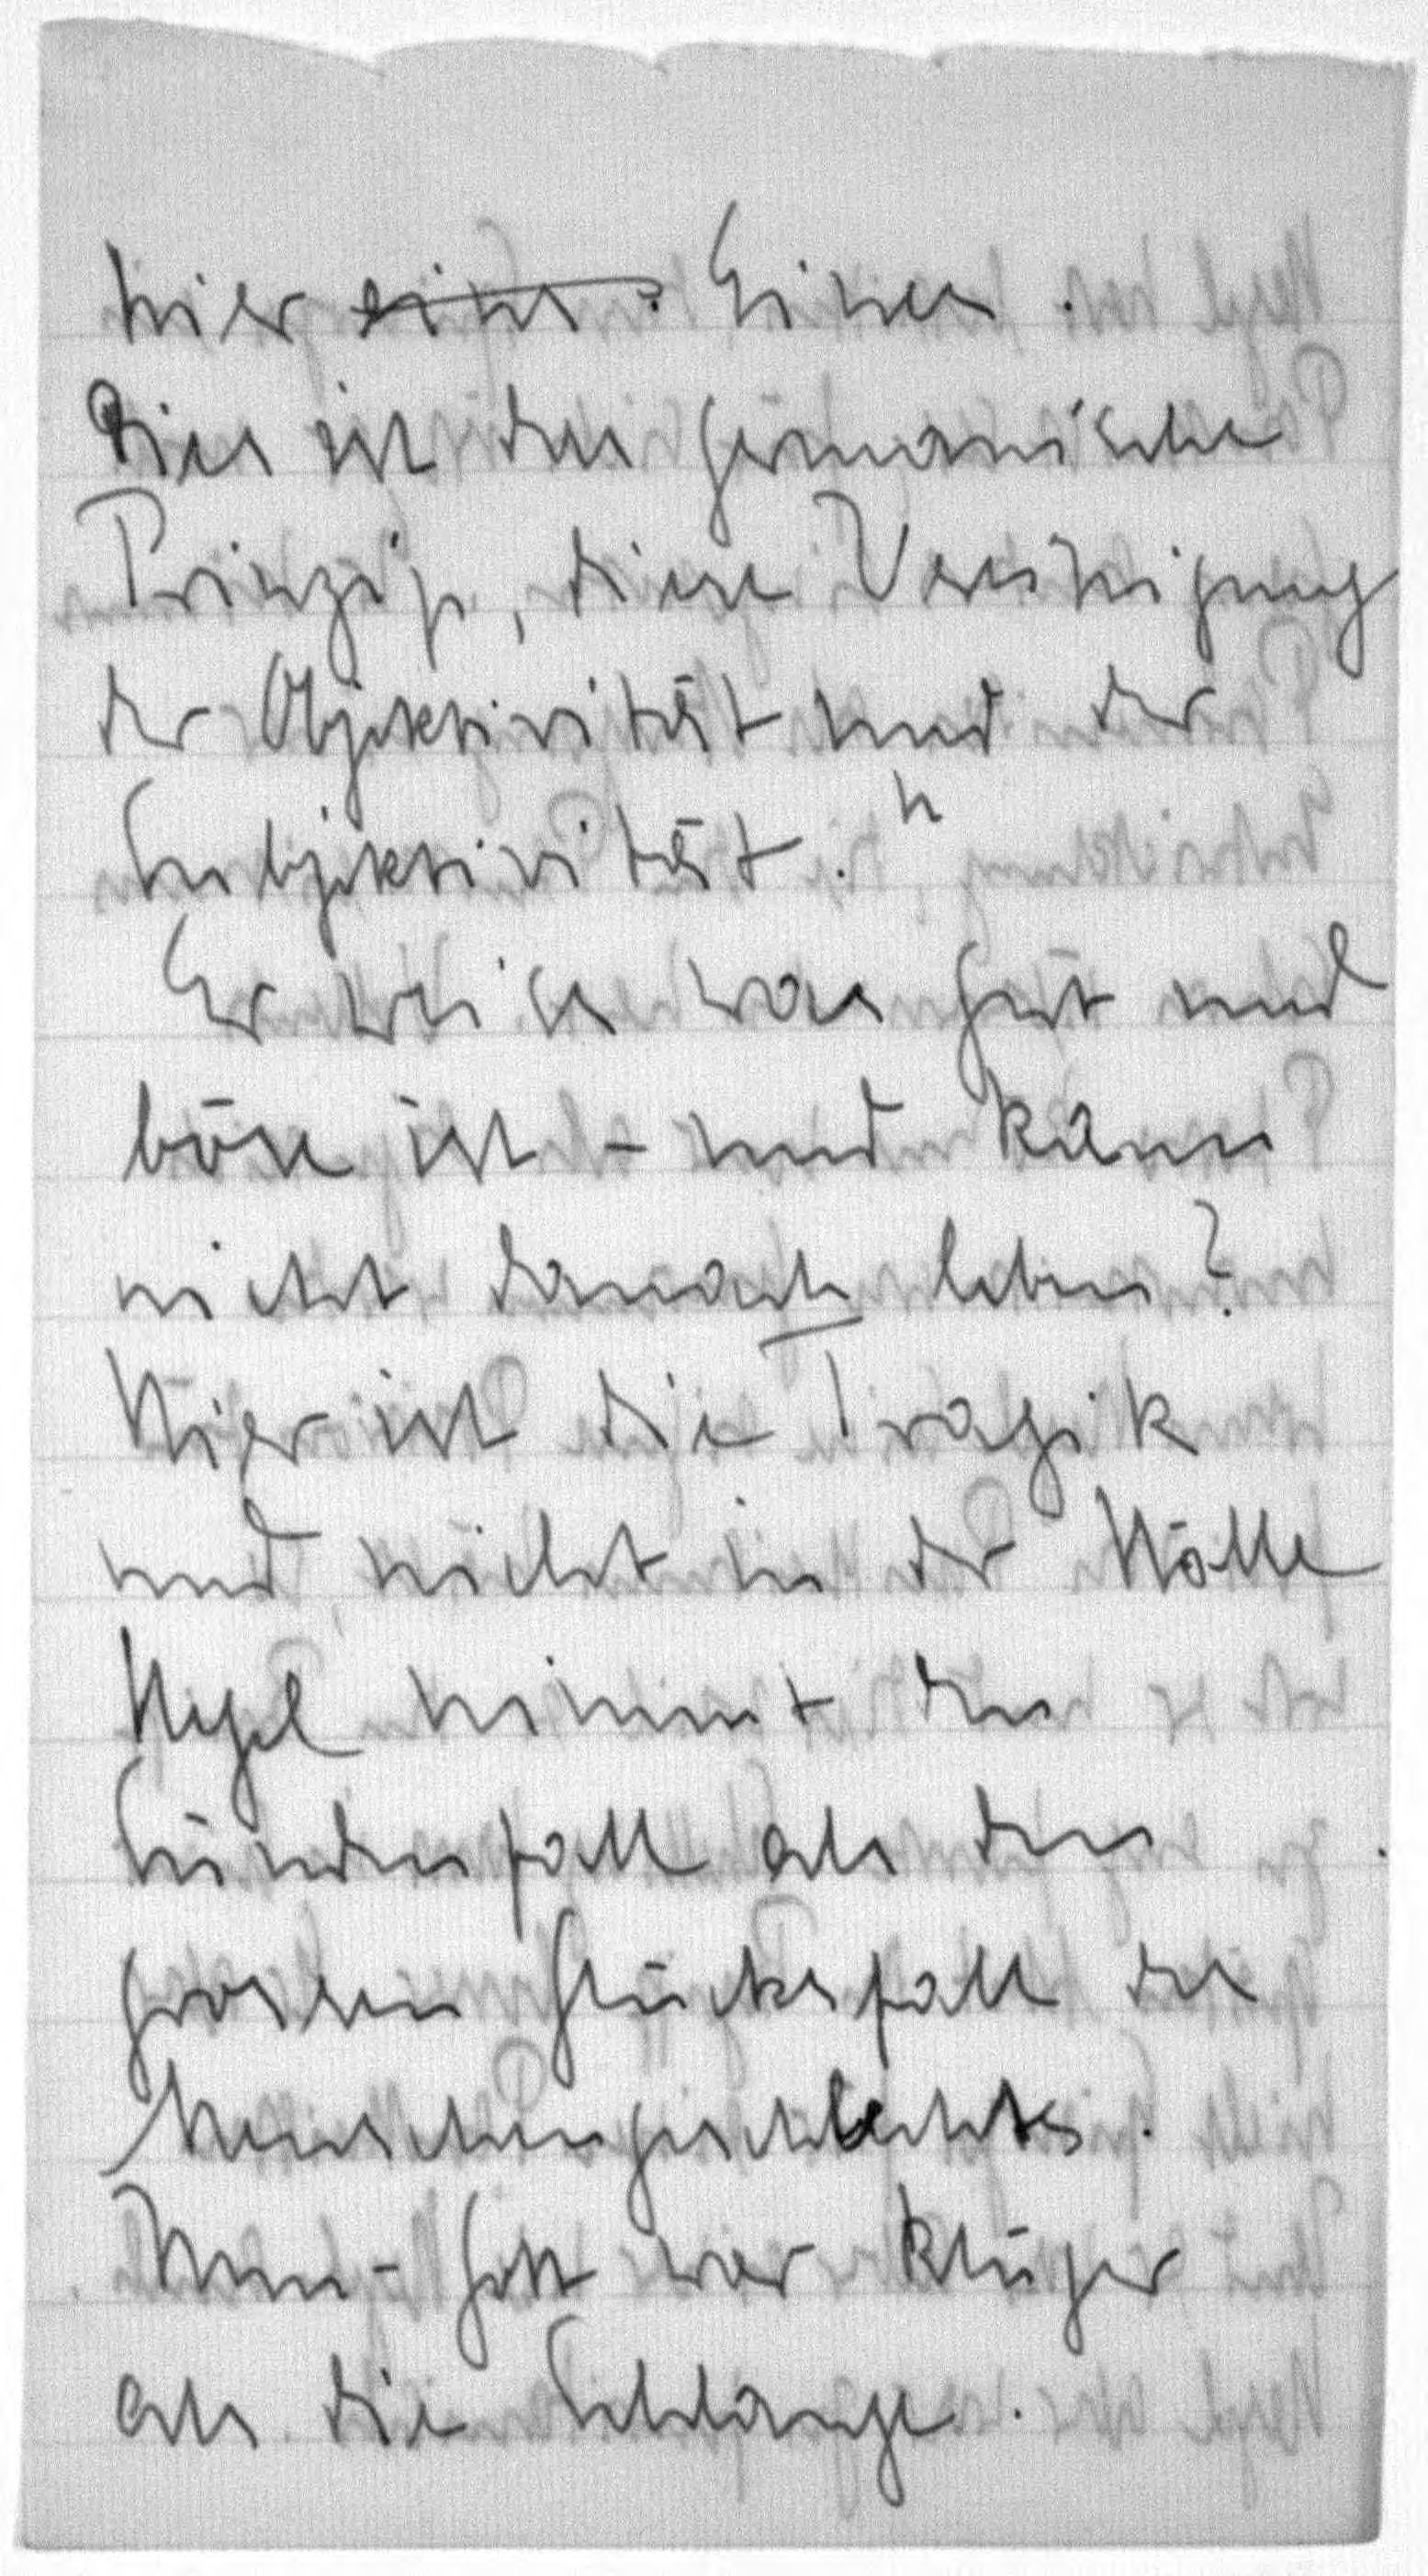 hier eins. Eines.
Dies ist das germanische
Prinzip, diese Vereinigung
der Objektivität und der
Subjektivität."
Er weiss was gut und
böse ist - und kann
nicht danach leben?
Hier ist die Tragik
und nicht in der Hölle
Hegel nimmt den
Sündenfall als den
grossen Glücksfall des
Menschengeschlechts.
Nun - Gott war klüger
als die Schlange.